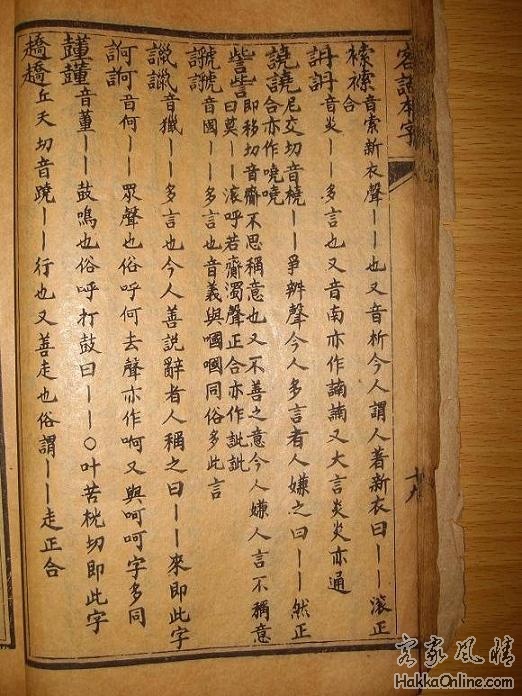 客話本字
音索新衣聲｜｜也又音析今人謂人著新衣曰｜｜滾正
合
音炎｜｜多言也又音南亦作諵諵又大言炎炎亦通
譊譊尼交切音橈｜｜爭辨聲今人多言者人嫌之曰｜｜然正
合亦作嘵嘵
訾訾即移切音齋不思稱意也又不善之意今人嫌人言不稱意
曰莫｜｜滾呼若齋濁聲正合亦作訿訿
音國｜｜多言也音義與嘓嘓同俗多此言
音獵｜｜多言也今人善說辭者人稱之曰｜｜來即此字
訶訶音何｜｜眾聲也俗呼何去聲亦作啊又與呵呵字多同
音董｜｜鼓鳴也俗呼打鼓曰｜｜○叶苦枕切即此字
趫趫丘夭切音蹺｜｜行也又善走也俗謂｜｜走正合
客家風情
HakkaOnline.com